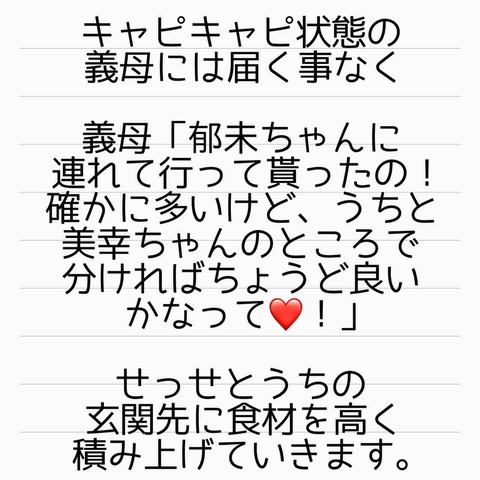 キャピキャピ状態の
義母には届く事なく
義母「郁未ちゃんに
連れて行って貰ったの！
確かに多いけど、うちと
美幸ちゃんのところで
分ければちょうど良い
かなって❤️！」
せっせとうちの
玄関先に食材を高く
積み上げていきます。